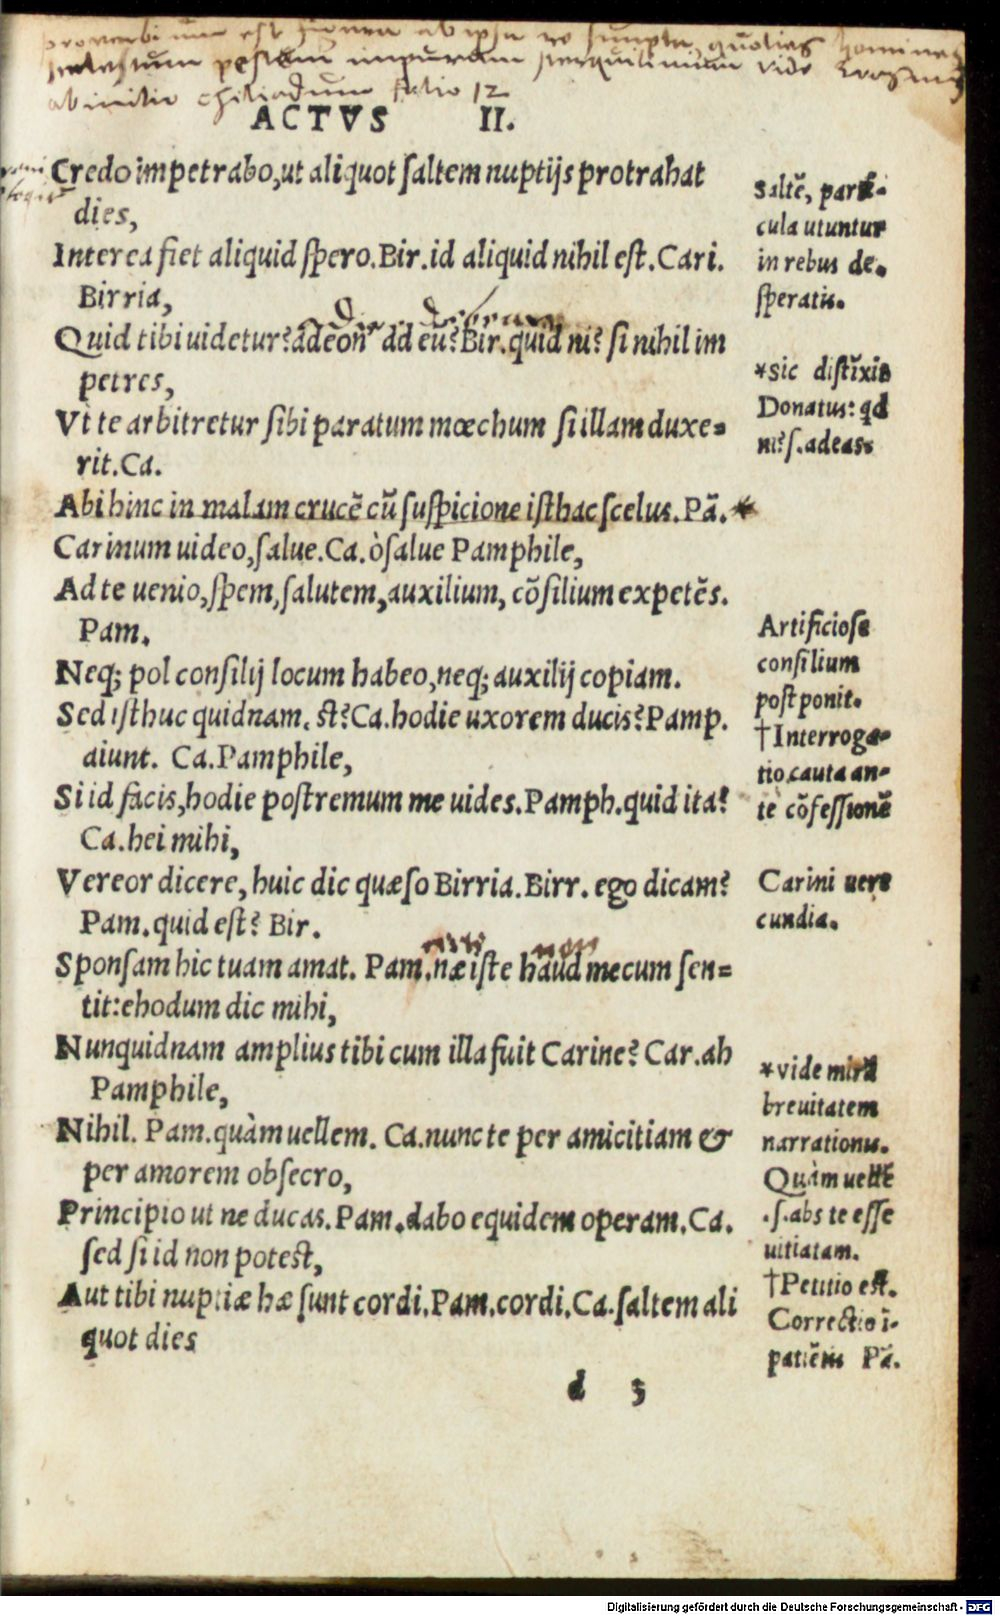 proverbium est figura ab ipsa re sumpta, quoties hominem
scelestum pestem impuram sterquilinium vide Erasmum
ab initio chiliadum folio 12
ACTVS II.
Credo impetrabo, ut aliquot ſaltem nuptijs protrahat
dies,
Interea fiet aliquid ſpero. Bir. id aliquid nihil eſt. Cari.
Birria,
Quid tibi uidetur? adeōn' ad eū? Bir. quid ni? ſi nihil im
petres,
Vt te arbitretur ſibi paratum mœchum ſi illam duxe=
rit. Ca.
Abi hinc in malam crucē cū ſuſpicione iſthac ſcelus. Pā. *
Carinum uideo, ſalue. Ca. ò ſalue Pamphile,
Ad te uenio, ſpem, ſalutem, auxilium, cōſilium expetēs.
Pam.
Neq; pol conſilij locum habeo, neq; auxilij copiam.
Sed iſthuc quidnam. ſt? Ca. hodie uxorem ducis? Pamp.
aiunt. Ca. Pamphile,
Si id facis, hodie poſtremum me uides. Pamph. quid ita?
Ca. hei mihi,
Vereor dicere, huic dic quæſo Birria. Birr. ego dicam?
Pam. quid eſt? Bir.
non
Sponſam hic tuam amat. Pam. næ iſte haud mecum ſen=
tit: ehodum dic mihi,
Nunquidnam amplius tibi cum illa fuit Carine? Car. ah
Pamphile,
Nihil. Pam. quàm uellem. Ca. nunc te per amicitiam &
per amorem obſecro,
Principio ut ne ducas. Pam. dabo equidem operam. Ca.
ſed ſi id non poteſt,
Aut tibi nuptiæ hæ ſunt cordi. Pam. cordi. Ca. ſaltem ali
quot dies
d 3
Saltē, parti-
cula utuntur
in rebus de-
ſperatis.
*sic diſtīxis
Donatus: qd
ni? ſ. adeas
Artificioſe
conſilium
poſtponit.
†Interroga-
tio, cauta an-
te cōfeſſionē
Carini uere
cundia.
*vide mirā
breuitatem
narrationis.
Quàm uellē
.ſ. abs te eſſe
uitiatam.
†Petitio eſt.
Correctio ī-
patiēns Pā.
Digitalisierung gefördert durch die Deutsche Forschungsgemeinschaft - DFG